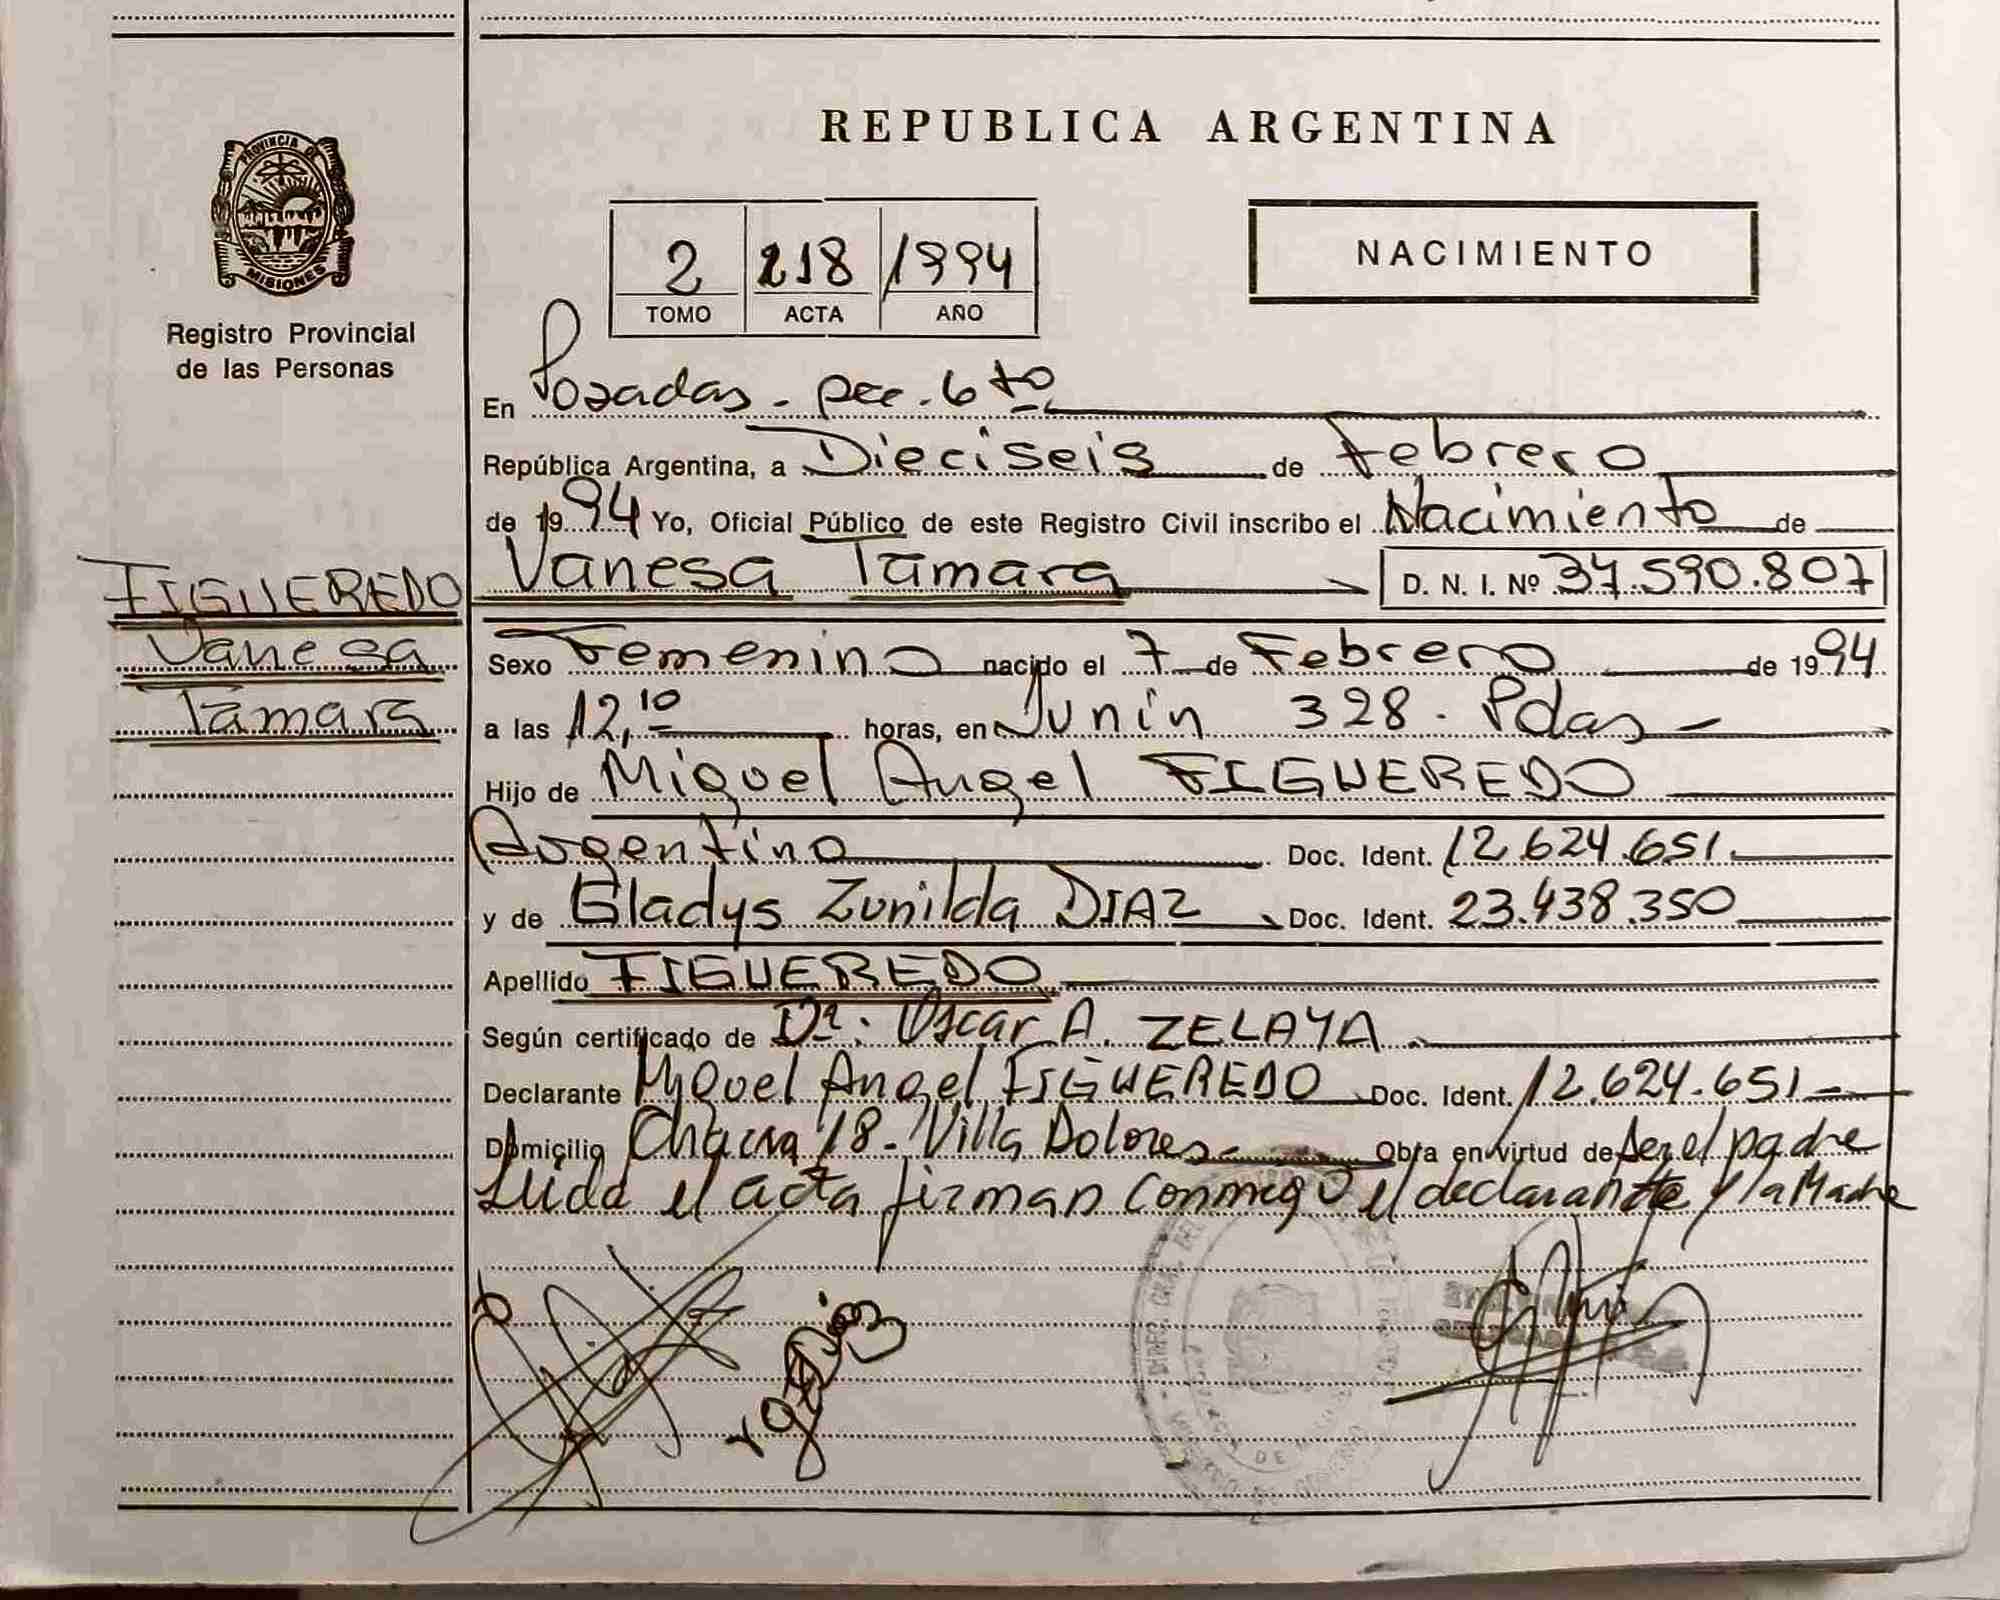 PROVINCIA DE
MISIONES
Registro Provincial
de las Personas
FIGUEREDO
Vanesa
Tamara
REPUBLICA ARGENTINA
2 218 1994
TOMO ACTA AÑO
NACIMIENTO
En Posadas - Sec. 6to
República Argentina, a Dieciseis de Febrero
de 1994 Yo, Oficial Público de este Registro Civil inscribo el Nacimiento de
Vanesa Tamara D. N. I. Nº 37.590.807
Sexo Femenino nacido el 7 de Febrero de 1994
a las 12,10 horas, en Junin 328 - Pdas
Hijo de Miguel Angel FIGUEREDO
Argentino Doc. Ident. 12.624.651
y de Gladys Zunilda DIAZ Doc. Ident. 23.438.350
Apellido FIGUEREDO
Según certificado de Dr. Oscar A. ZELAYA
Declarante Miguel Angel FIGUEREDO Doc. Ident. 12.624.651
Domicilio Chacra 18 - Villa Dolores - Obra en virtud de ser el padre
Leida el acta firman conmigo el declarante y la Madre